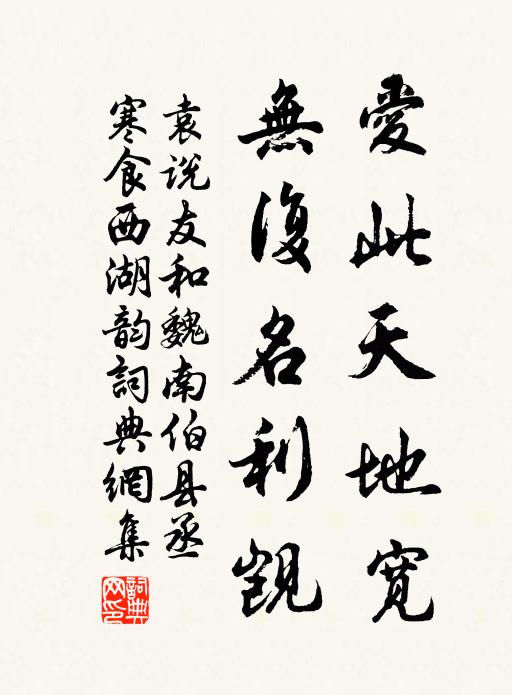 愛此天地寬
無復名利覬
袁说友和魏南伯县丞
寒食西湖韵詞典網集
詞典